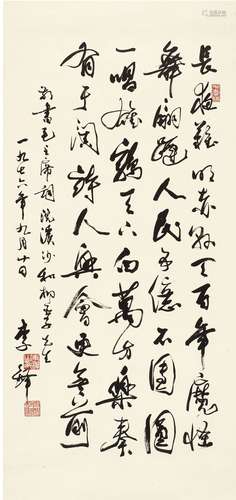 長夜難明赤縣天百年魔怪
舞翩躚人民五億不團圓
一唱雄鷄天下白萬方樂奏
有于闐詩人興會更無前
敬書毛主席詞浣溪沙和柳亞子先生
一九七六年九月十日
李鐸